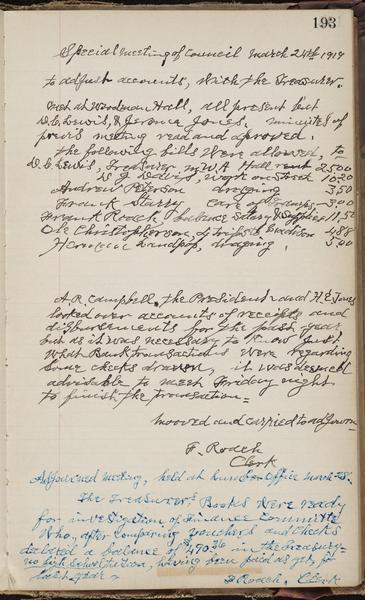 193
Special meeting of Council March 24th 1919
to adjust accounts, with the Treasurer.
Met at Woodman Hall, all present but
D.C. Lewis, & Jerome Jones, minutes of
previs meeting read and aproved.
The following bills were allowed, to
D.C. Lewis, Treasurer M.W.A. Hall rent 25.00
Davis, work on Street 10.20
Andrew Peterson draging 3.50
Frank Starry Care of Tramps 3.00
Frank Roach balance Salary & Supplies 11.50
Ole Christopherson, 4.88
Herman draging. 5.00
A.R. Campbell, the President and H.E. Jones
looked over accounts of receipts and
disbursements for the past year
but as it was necessary to know just
what Bank transactions were regarding
some checks drawn, it was deemed
advisable to meet Friday night
to finish the transaction=
mooved and carried to adjourn
F. Roach
Clerk
Adjourned meeting, held at Lumber Office March 28.
The Treasurers Books were ready
for investigation of Finance Committe
Who, after comparing vouchers and checks
a balance of $490.36 in the treasury=
no high school tuition, having been paid as yet, for
last year=
F Roach, Clerk